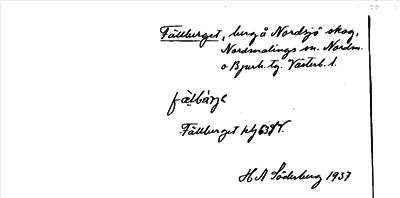 Fällberget, berg å Nordsjö skog,
Nordmalings sn. Nordm.
o Bjurh. tg. Västerb. l.
fälbärje
Fällberget
H A Söderberg 1937